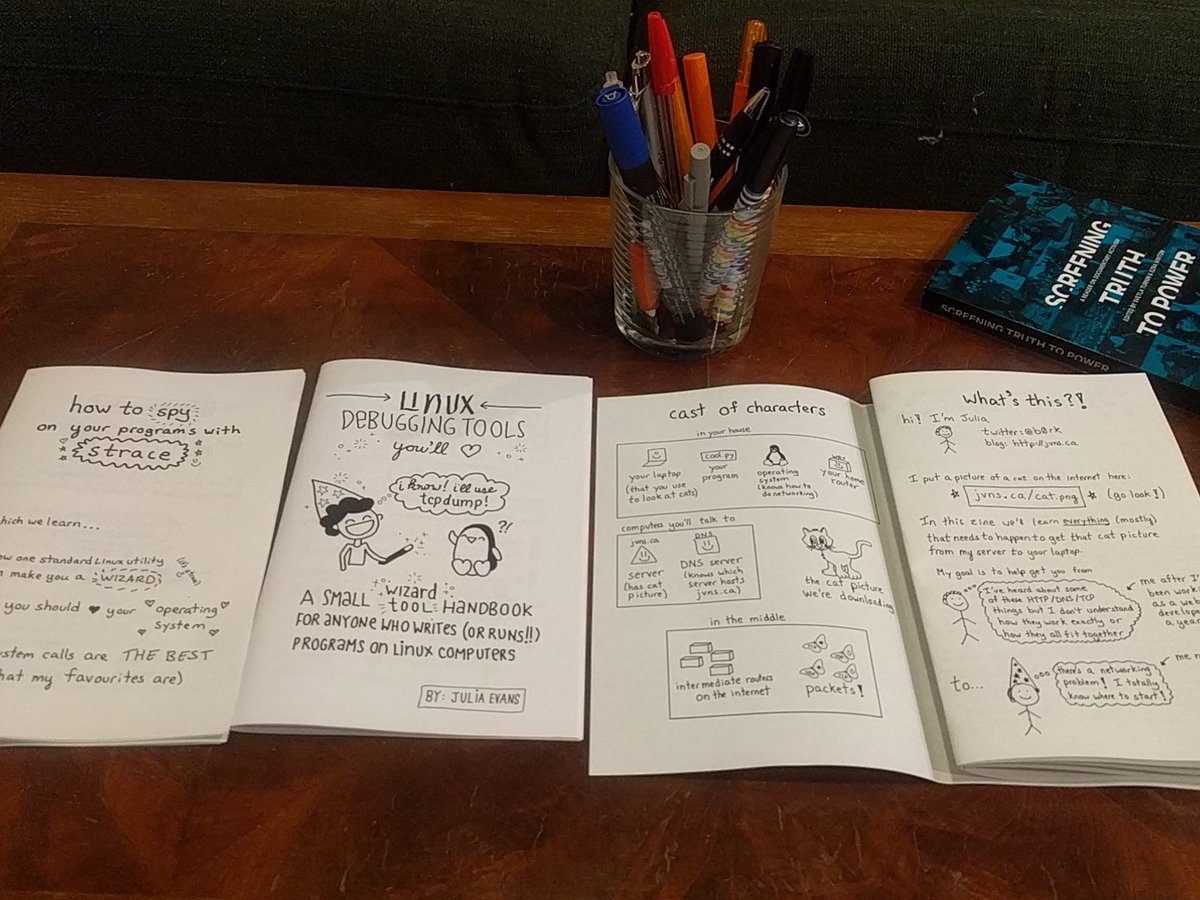 how to spy
on your programs with
strace
which we learn...
how one standard Linux utility
make you a WIZARD
you should your operating
system
system calls are THE BEST
what my favourites are)
LINUX
DEBUGGING TOOLS
you'll
i know! i'll use
tcpdump!
?!
A SMALL wizard TOOL HANDBOOK
FOR ANYONE WHO WRITES (OR RUNS!!)
PROGRAMS ON LINUX COMPUTERS
BY: JULIA EVANS
cast of characters
in your house
your laptop
(that you use
to look at cats)
cool.py
your
program
operating
system
(knows how to
do networking)
your home
router
computers you'll talk to
jvns.ca
server
(has cat
picture)
DNS
DNS server
(knows which
server hosts
jvns.ca)
the cat picture
we're downloading
in the middle
intermediate routers
on the internet
packets!
What's this?!
hi! I'm Julia
twitter: @b0rk
blog: http://jvns.ca
I put a picture of a cat on the internet here:
jvns.ca/cat.png (go look!)
In this zine we'll learn everything (mostly)
that needs to happen to get that cat picture
from my server to your laptop.
My goal is to help get you from
I've heard about some
of these HTTP/DNS/TCP
things but I don't understand
how they work exactly or
how they all fit together
me after I'
been work
as a web
develope
a year
to...
there's a networking
problem! I totally
know where to start!
me
SCREENING
TRUTH
TO POWER
A READER ON DOCUMENTARY ACTIVISM
SCREENING TRUTH TO POWER